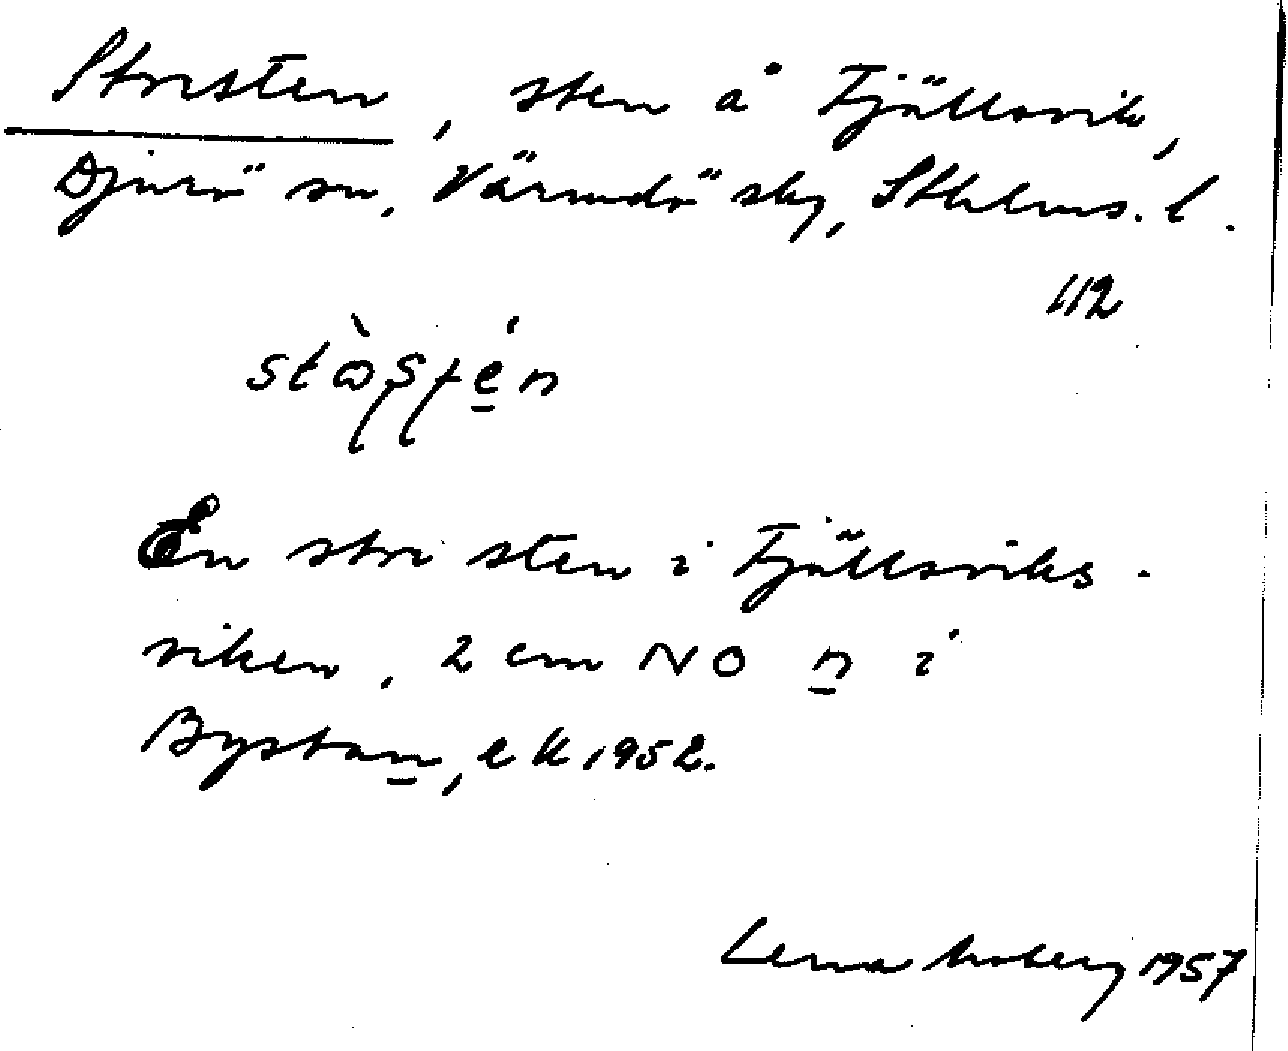 Storsten, sten å Fjällsvik,
Djurö sn, Värmdö skg, Sthlms. l.
112
En stor sten i Fjällsviks-
viken, 2 cm NO n i
Bystan, ek 1952.
Lena Moberg 1957